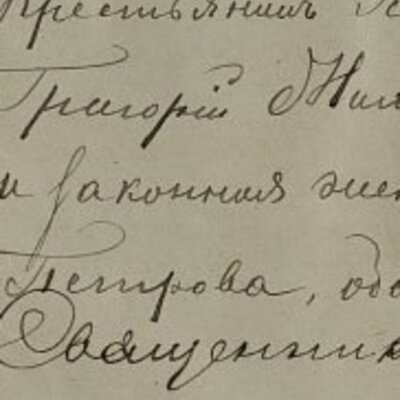 Крестьянинъ
Григорій
и законная
Петрова,
Священник